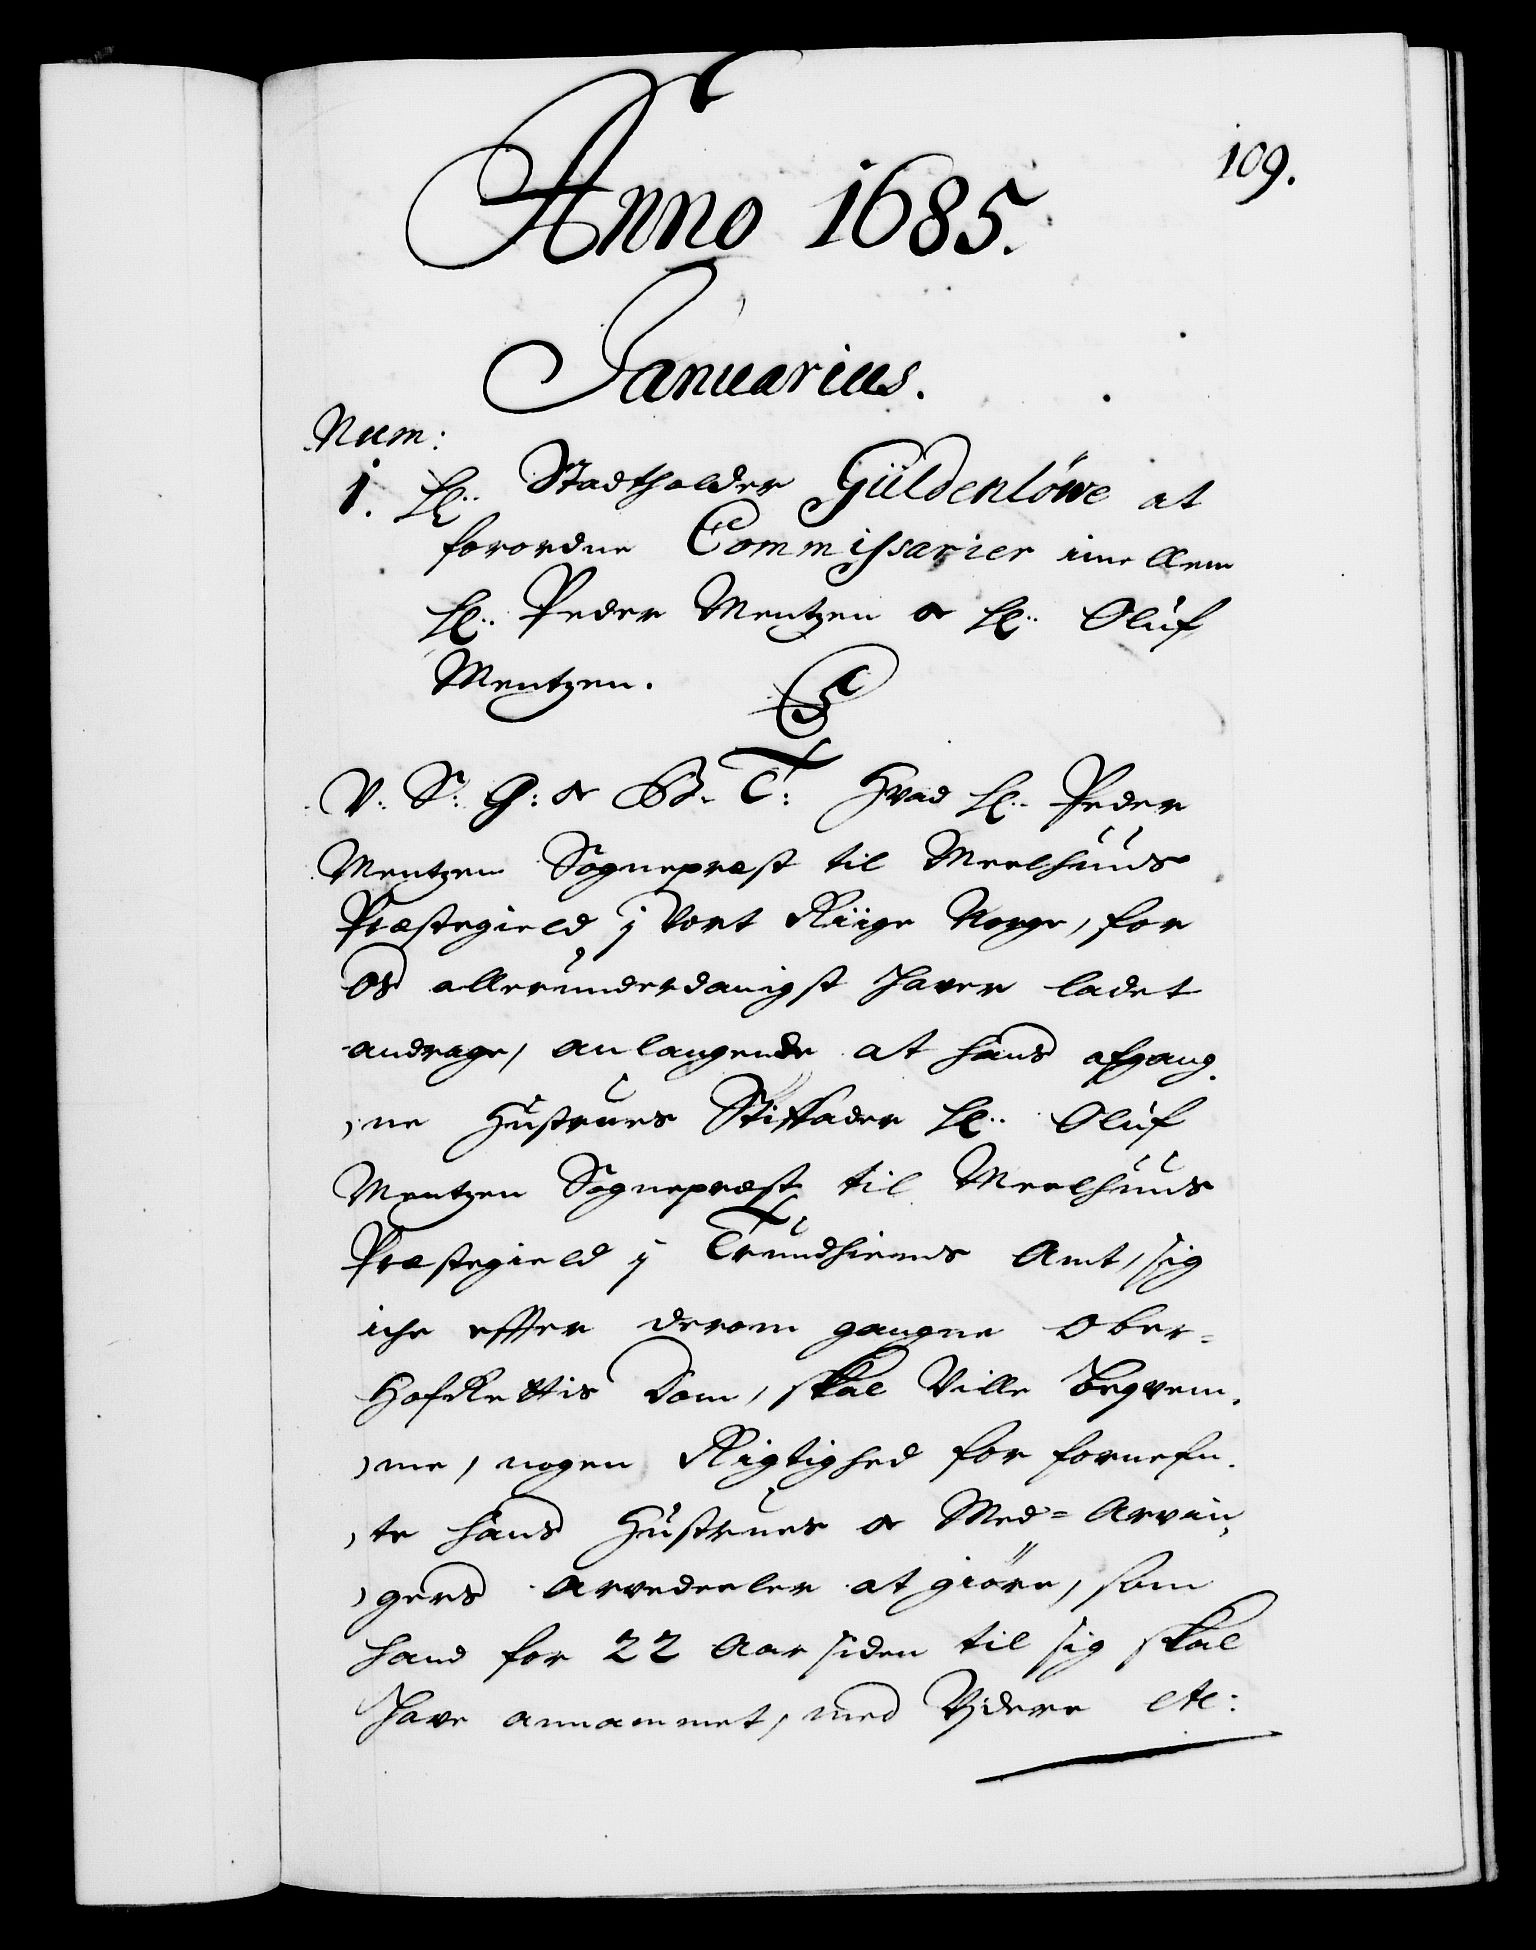 109.
Anno 1685.
Januarius.
Num:
1. Hr: Stadtholder Güldenlöwe at
forordne Commissarier imellem
Hr: Peder Mentzen og Hr: Oluf
Mentzen.
C5
V: S: G: og B: T: Hvad Hr: Peder
Mentzen Sognepræst til Meelhuus
Præstegield j Vort Riige Norge, for
Os allerunderdanigst haver ladet
andrage, anlangende at hans afgang
ne Hustrues Stiffader Hr: Oluf
Mentzen Sognepræst til Meelhuus
Præstegield j Trundhiems Amt, sig
iche effter derom gangne Ober-
HofRettis Dom, skal Ville beqvem
me, nogen Rigtighed for fornefn
te hans Hustrues og Med-Arvin
gers Arvedeeler at giöre, som
hand for 22 Aar siden til sig skal
have annammet, med Videre etc: